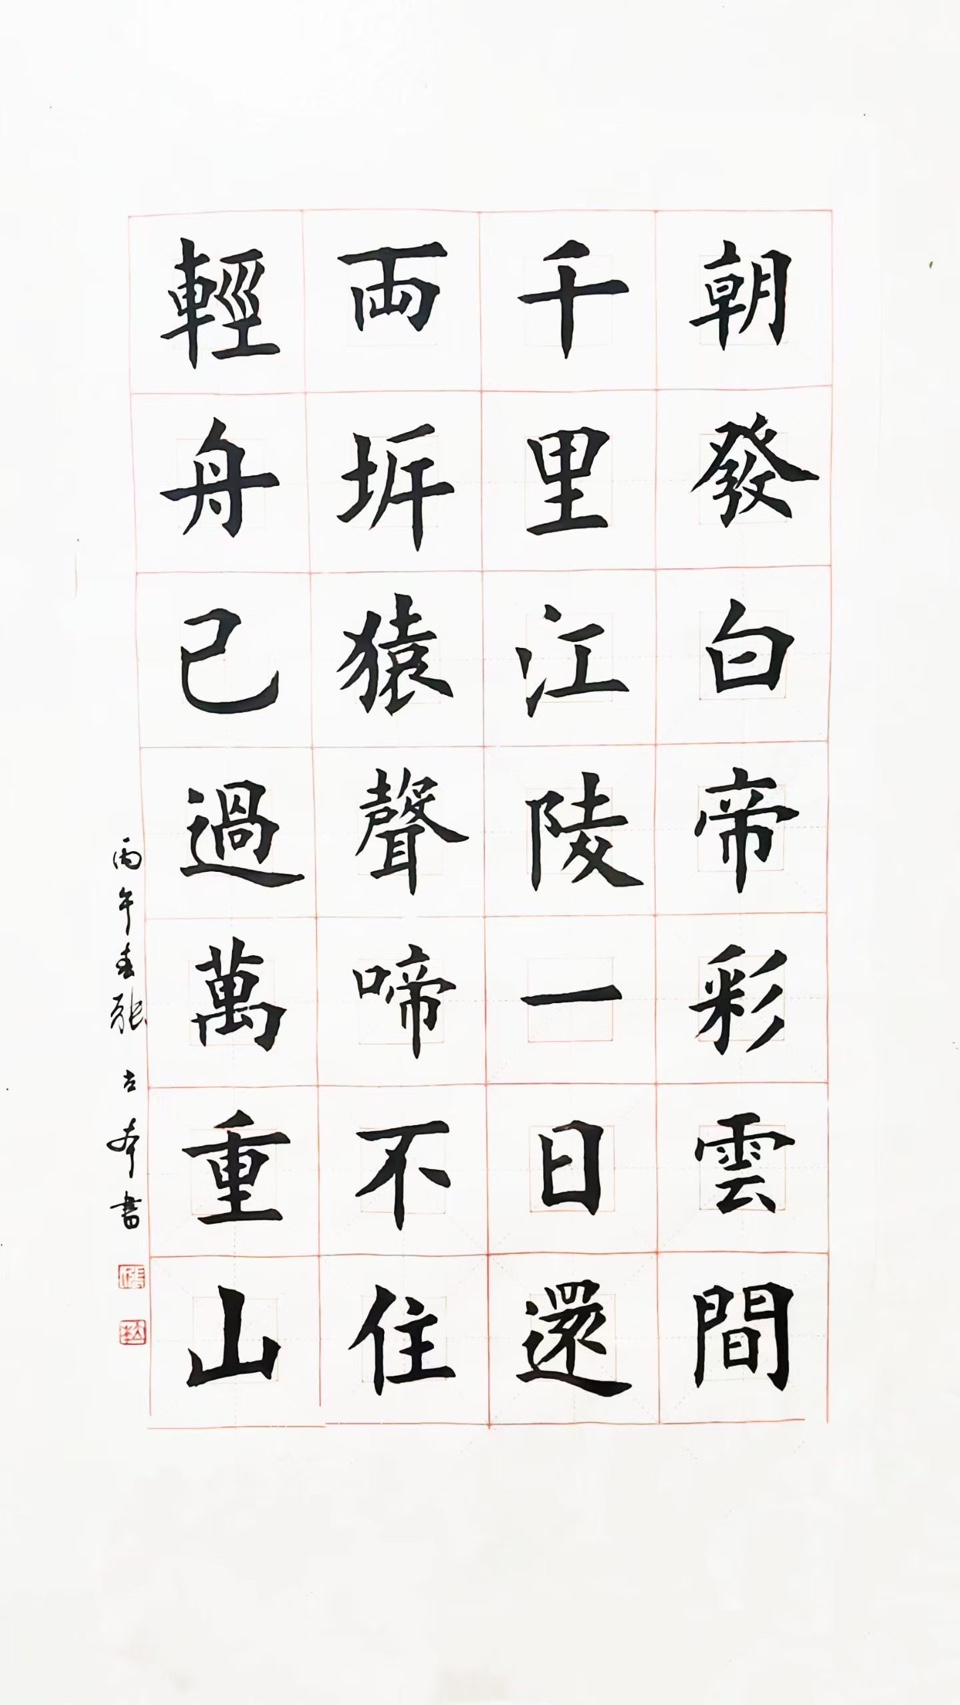 朝發白帝彩雲間
千里江陵一日還
兩岸猿聲啼不住
輕舟已過萬重山
丙午春張書